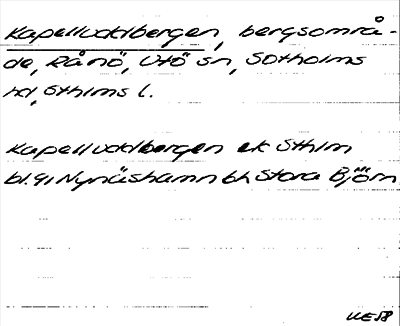 Kapelluddbergen, bergsområ-
de, Rånö, Utö sn, Sotholms
hd, Sthlms l.
Kapelluddbergen ek Sthlm
bl. 91 Nynäshamn bh Stora Björn